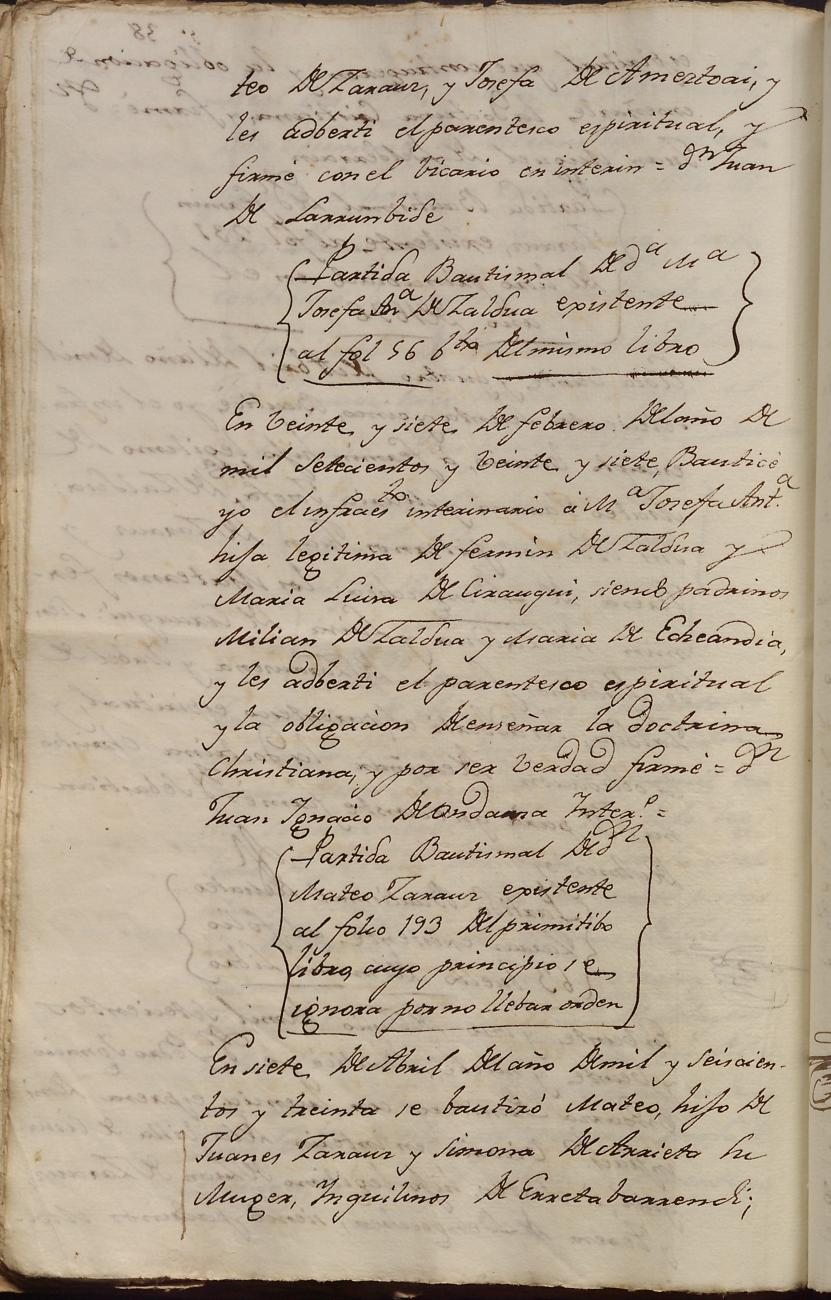 teo De Zaraur, y Josefa De Amertoai, y
les adberti el parentesco espiritual, y
firmé con el bicario en interin = dn Juan
De Larrunbide
Partida Bautismal De da Ma
Josefa Anta De Zaldua existente
al fol 56 bto Del mismo libro
En beinte, y siete, De febrero Del año De
mil Setecientos y beinte y siete, Bauticé
yo el infraesto interinario á Ma Josefa Anta
hija legitima De fermin De Zaldua y
Maria Luisa De Ciraugui, siendo padrinos
Milian De Zaldua y Maria De Echeandia,
y les adberti el parentesco espiritual
y la obligacion De enseñar la doctrina
Christiana, y por ser berdad firmé = dn
Juan Ygnacio De Andama Intero =
Partida Bautismal De dn
Mateo Zaraur existente
al folio 193 Del primitibo
libro, cuyo principio se
ignora por no llebar orden
En siete De Abril Del año De mil y seiscien-
tos y treinta se bautizó Mateo, hijo De
Juanes Zaraur y Simona De Arrieta su
Muger, Ynquilinos De Erretabarrendi;